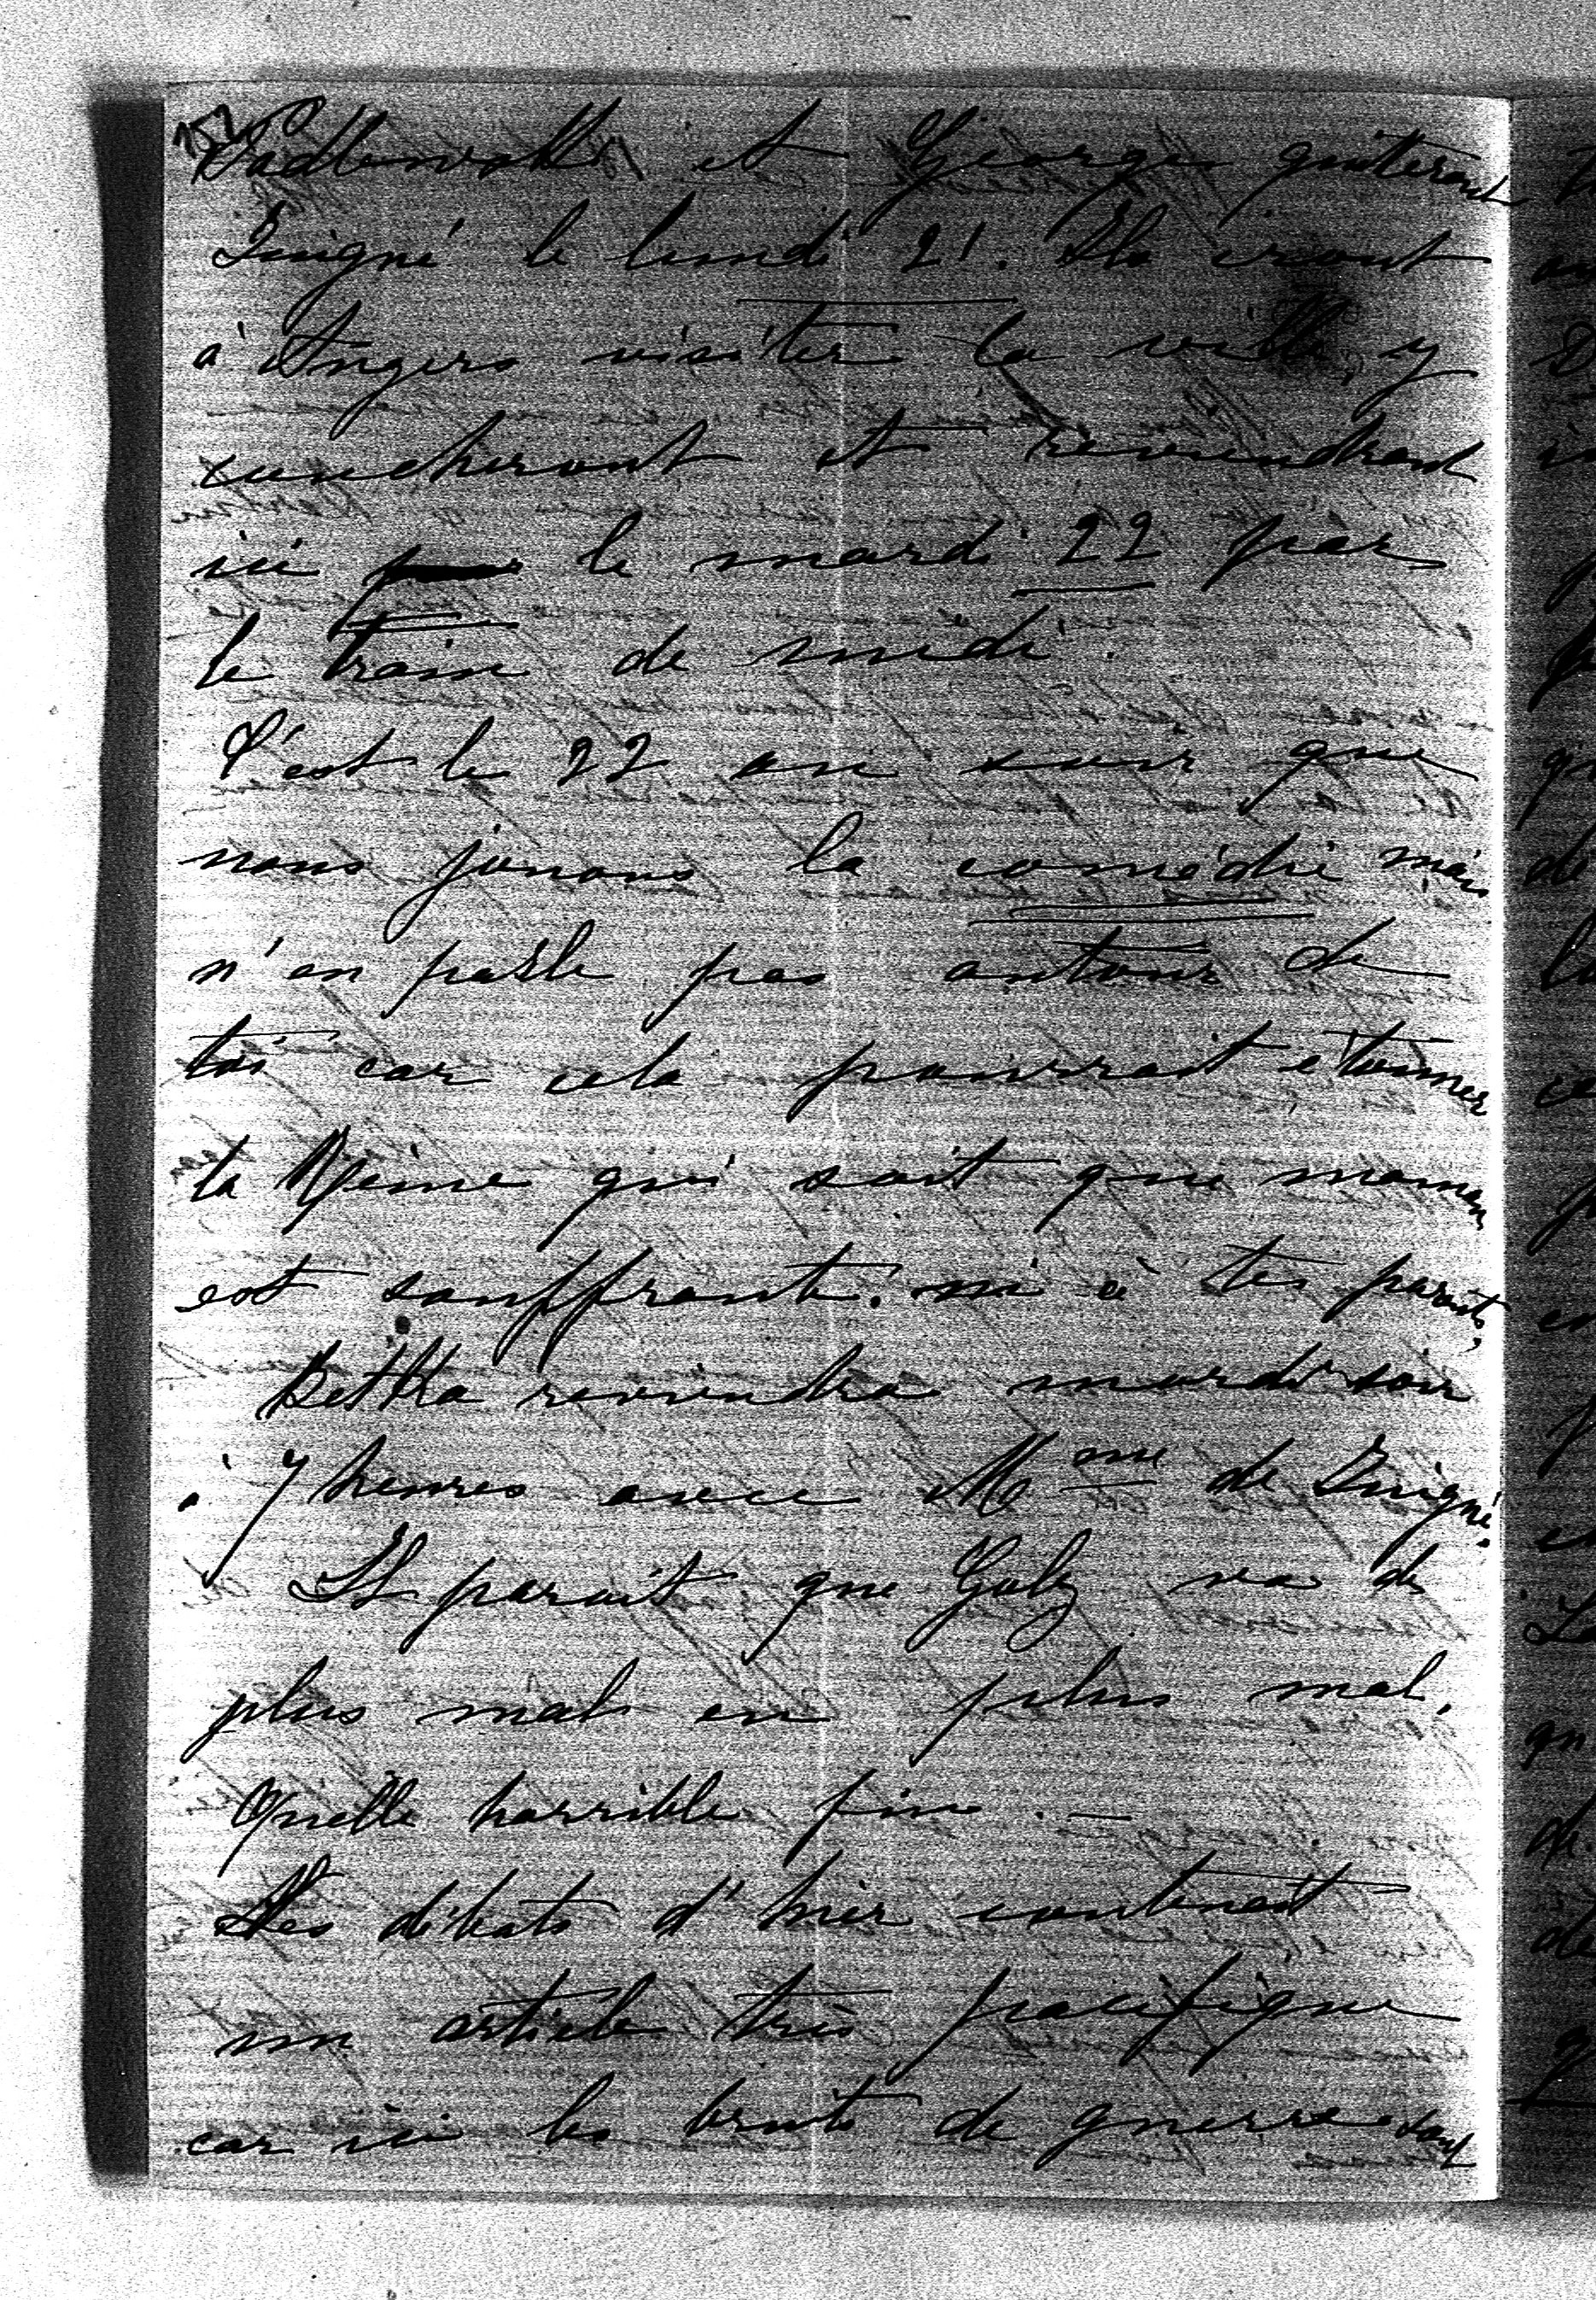 et Georges quitteront
Juigné le lundi 21. Ils iront
à Angers visiter la ville, y
coucheront et reviendront
ici le mardi 22 par
le train de midi.
C'est le 22 au soir que
nous jouons la comédie mais
n'en parle pas autour de
toi car cela pourrait étonner
la Reine qui sait que maman
est souffrante. ni à tes parents,
Betka reviendra mardi soir
à 7 heures avec Mme de Juigné.
Il parait que Galz va de
plus mal en plus mal.
Quelle horrible fin. —
Les débats d'hier contenait
un article très pacifique
car ici les bruits de guerre sont